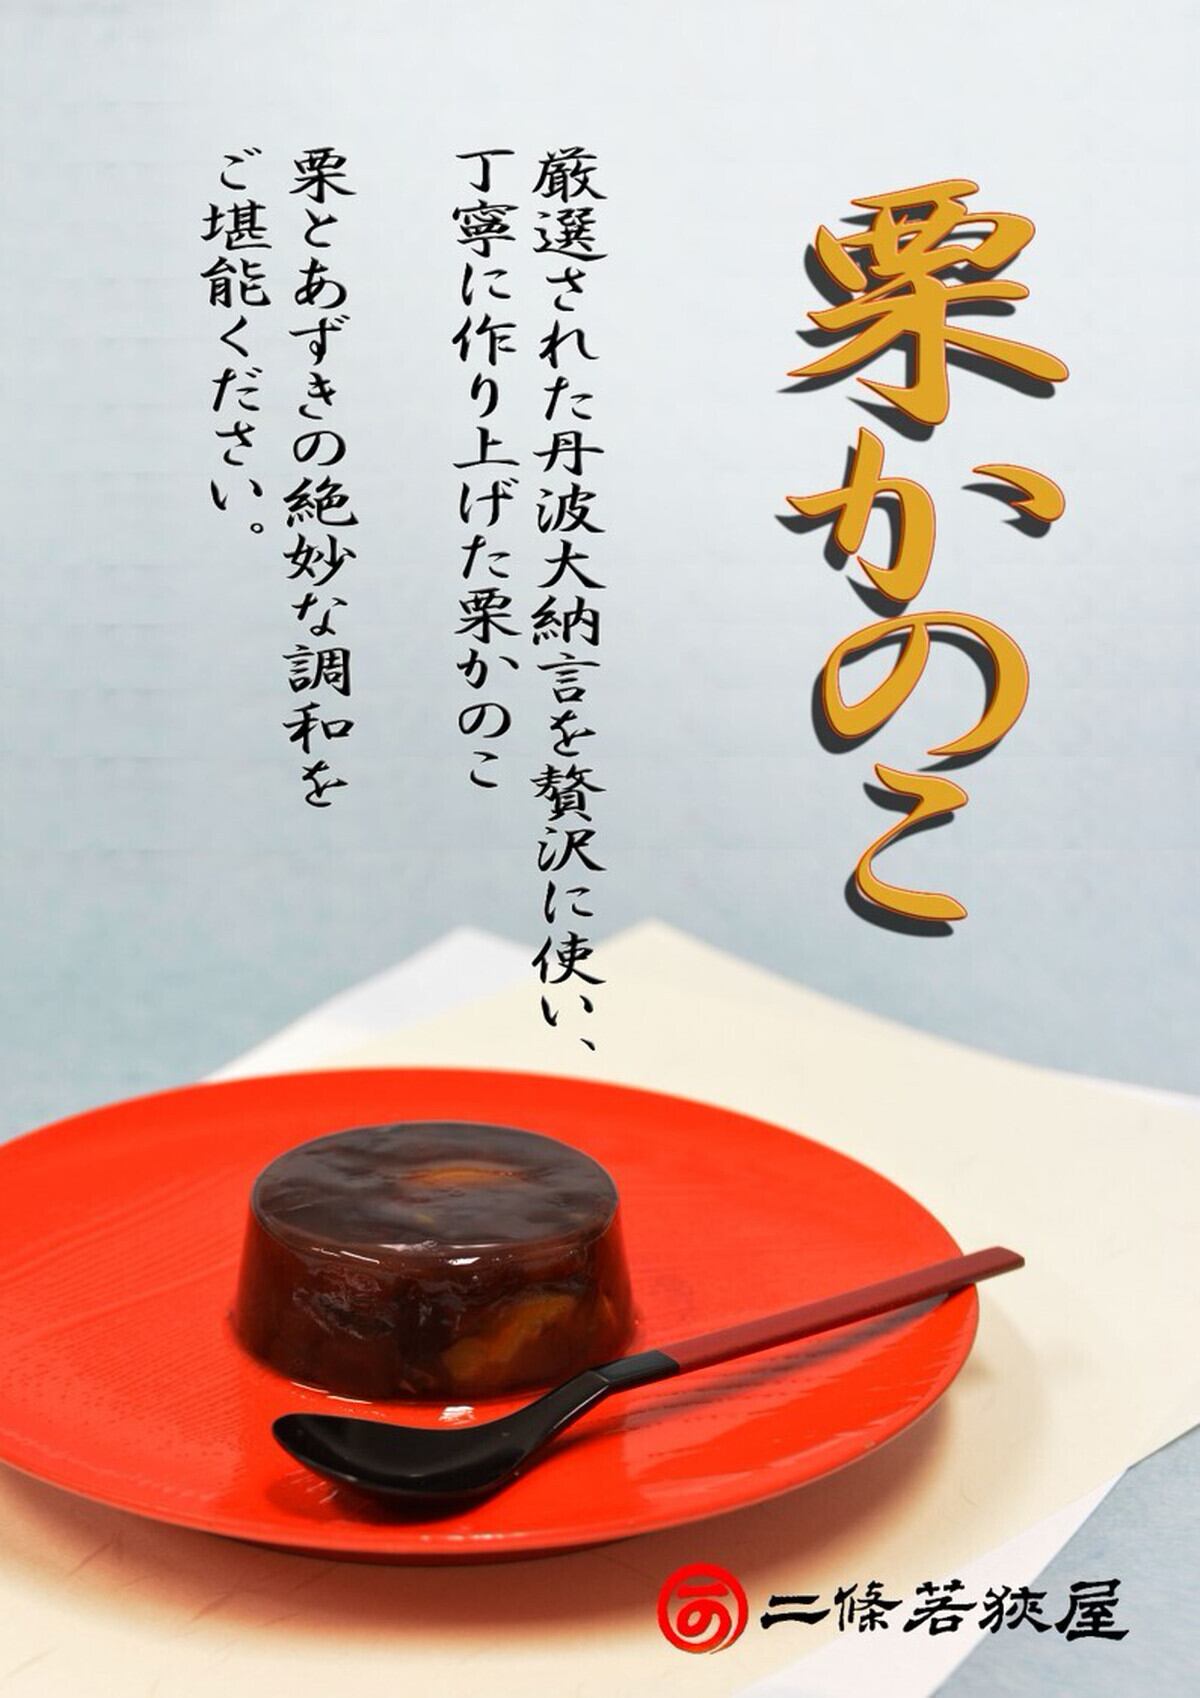 栗かのこ
厳選された丹波大納言を贅沢に使い、
丁寧に作り上げた栗かのこ
栗とあずきの絶妙な調和を
ご堪能ください。
二條若狹屋